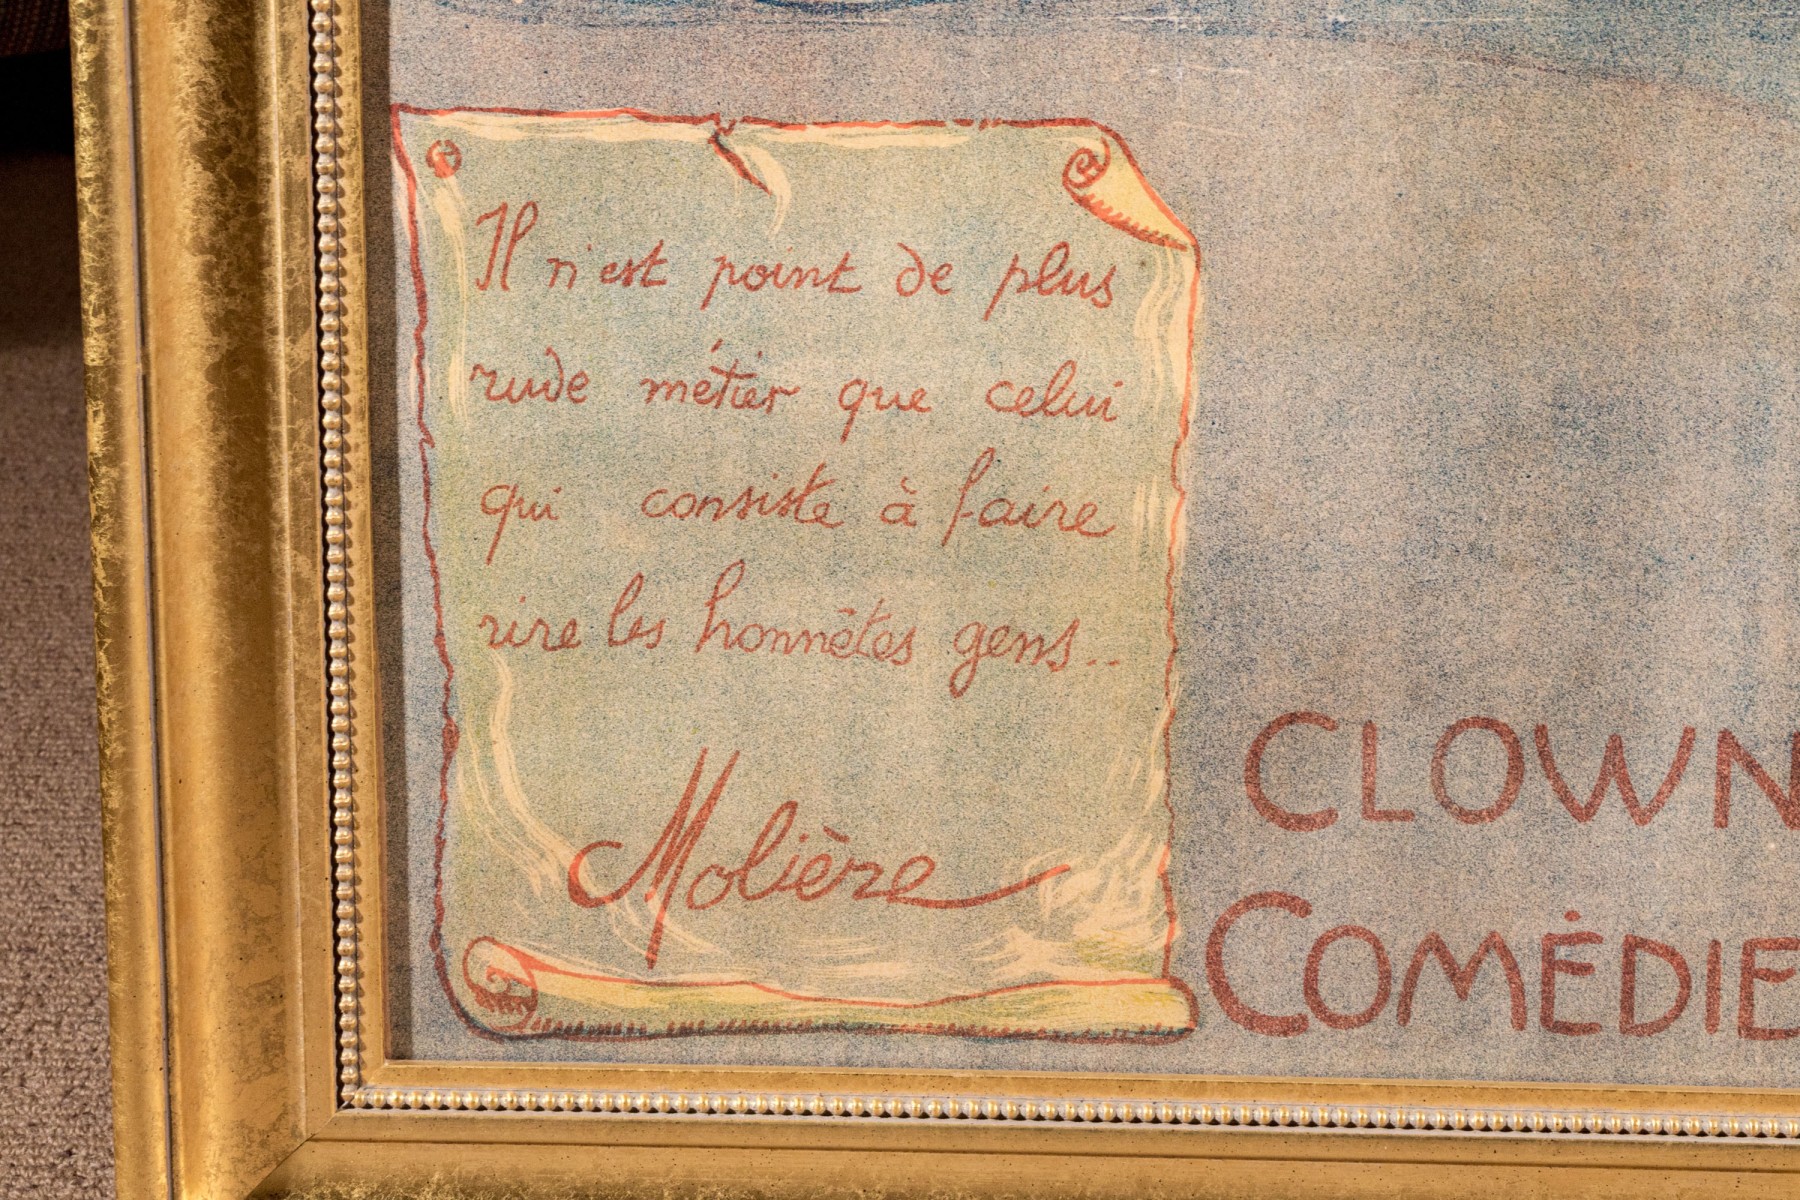 Il n'est point de plus
rude métier que celui
qui consiste à faire
rire les honnêtes gens..
Molière
CLOWN
COMÉDIE